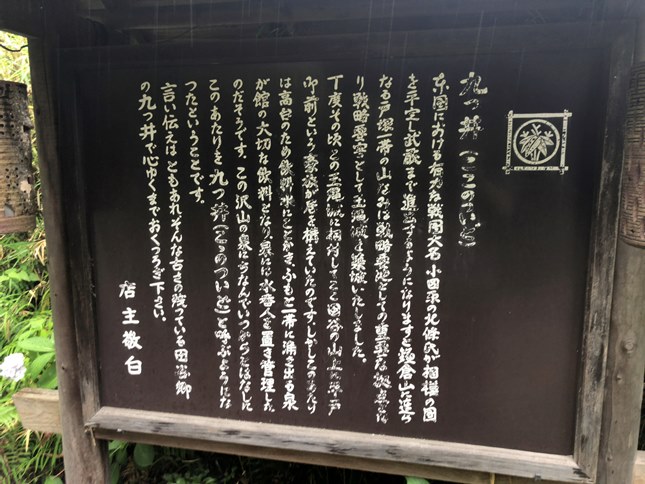 九つ井(ここのついど)
東国における有力な戦国大名 小田原の北條氏が相模の国
を平定し武蔵まで進出するようになりますと鎌倉山に連ら
なる戸塚一帯の山なみは戦略要地としての重要な拠点とな
り戦略要害として玉縄城を築城いたしました。
丁度その頃この玉縄城に相対してここ田谷の山上に平戸
御前という豪族が居を構えていたのです。しかしそのあたり
は高台のため飲料水にことかき、ふもと一帯に涌き出る泉
が館の大切な飲料となり、泉には水番人を置き管理した
のだそうです。この沢山の泉にちなんでいつからとはなしに
このあたりを九つ井(ここのついど)と呼ぶようにな
ったということです。
言い伝えはともあれ、そんな古さの残っている田舎郷
の九つ井で心ゆくまでおくつろぎ下さい。
店主敬白